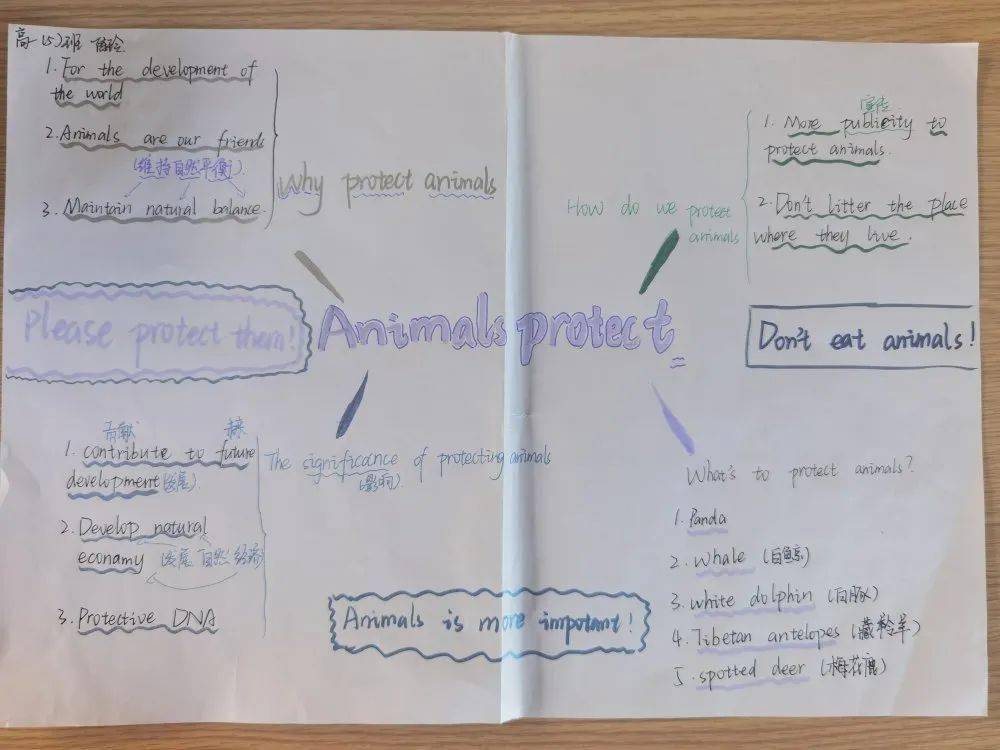 高一(5)班
1. For the development of
the world
2. Animals are our friends
(维持自然平衡)
3. Maintain natural balance.
Why protect animals
宣传
1. More publicity to
protect animals.
2. Don't litter the place
where they live.
How do we protect
animals
Please protect them!
Animals protect
Don't eat animals!
贡献
1. contribute to future
development (发展)
2. Develop natural
econamy 发展 自然 经济
3. Protective DNA
The significance of protecting animals
(影响)
Animals is more impotant!
What's to protect animals?
1. Panda
2. whale (白鲸)
3. white dolphin (白豚)
4. Tibetan antelopes (藏羚羊)
5. spotted deer (梅花鹿)